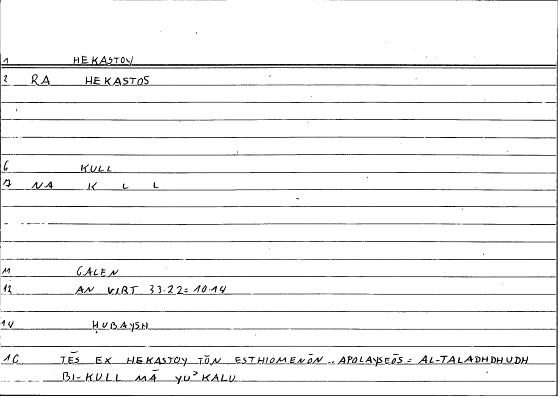 1 HEKASTOY
2 RA HEKASTOS
6 KULL
7 NA K L L
11 GALEN
12 AN VIRT 33.22 = 10.14
14 ḤUBAYSH
16 TĒS EX HEKASTOY TŌN ESTHIOMENŌN .. APOLAYSEŌS = AL-TALADHDHUDH
BI-KULL MĀ YUʾKALU